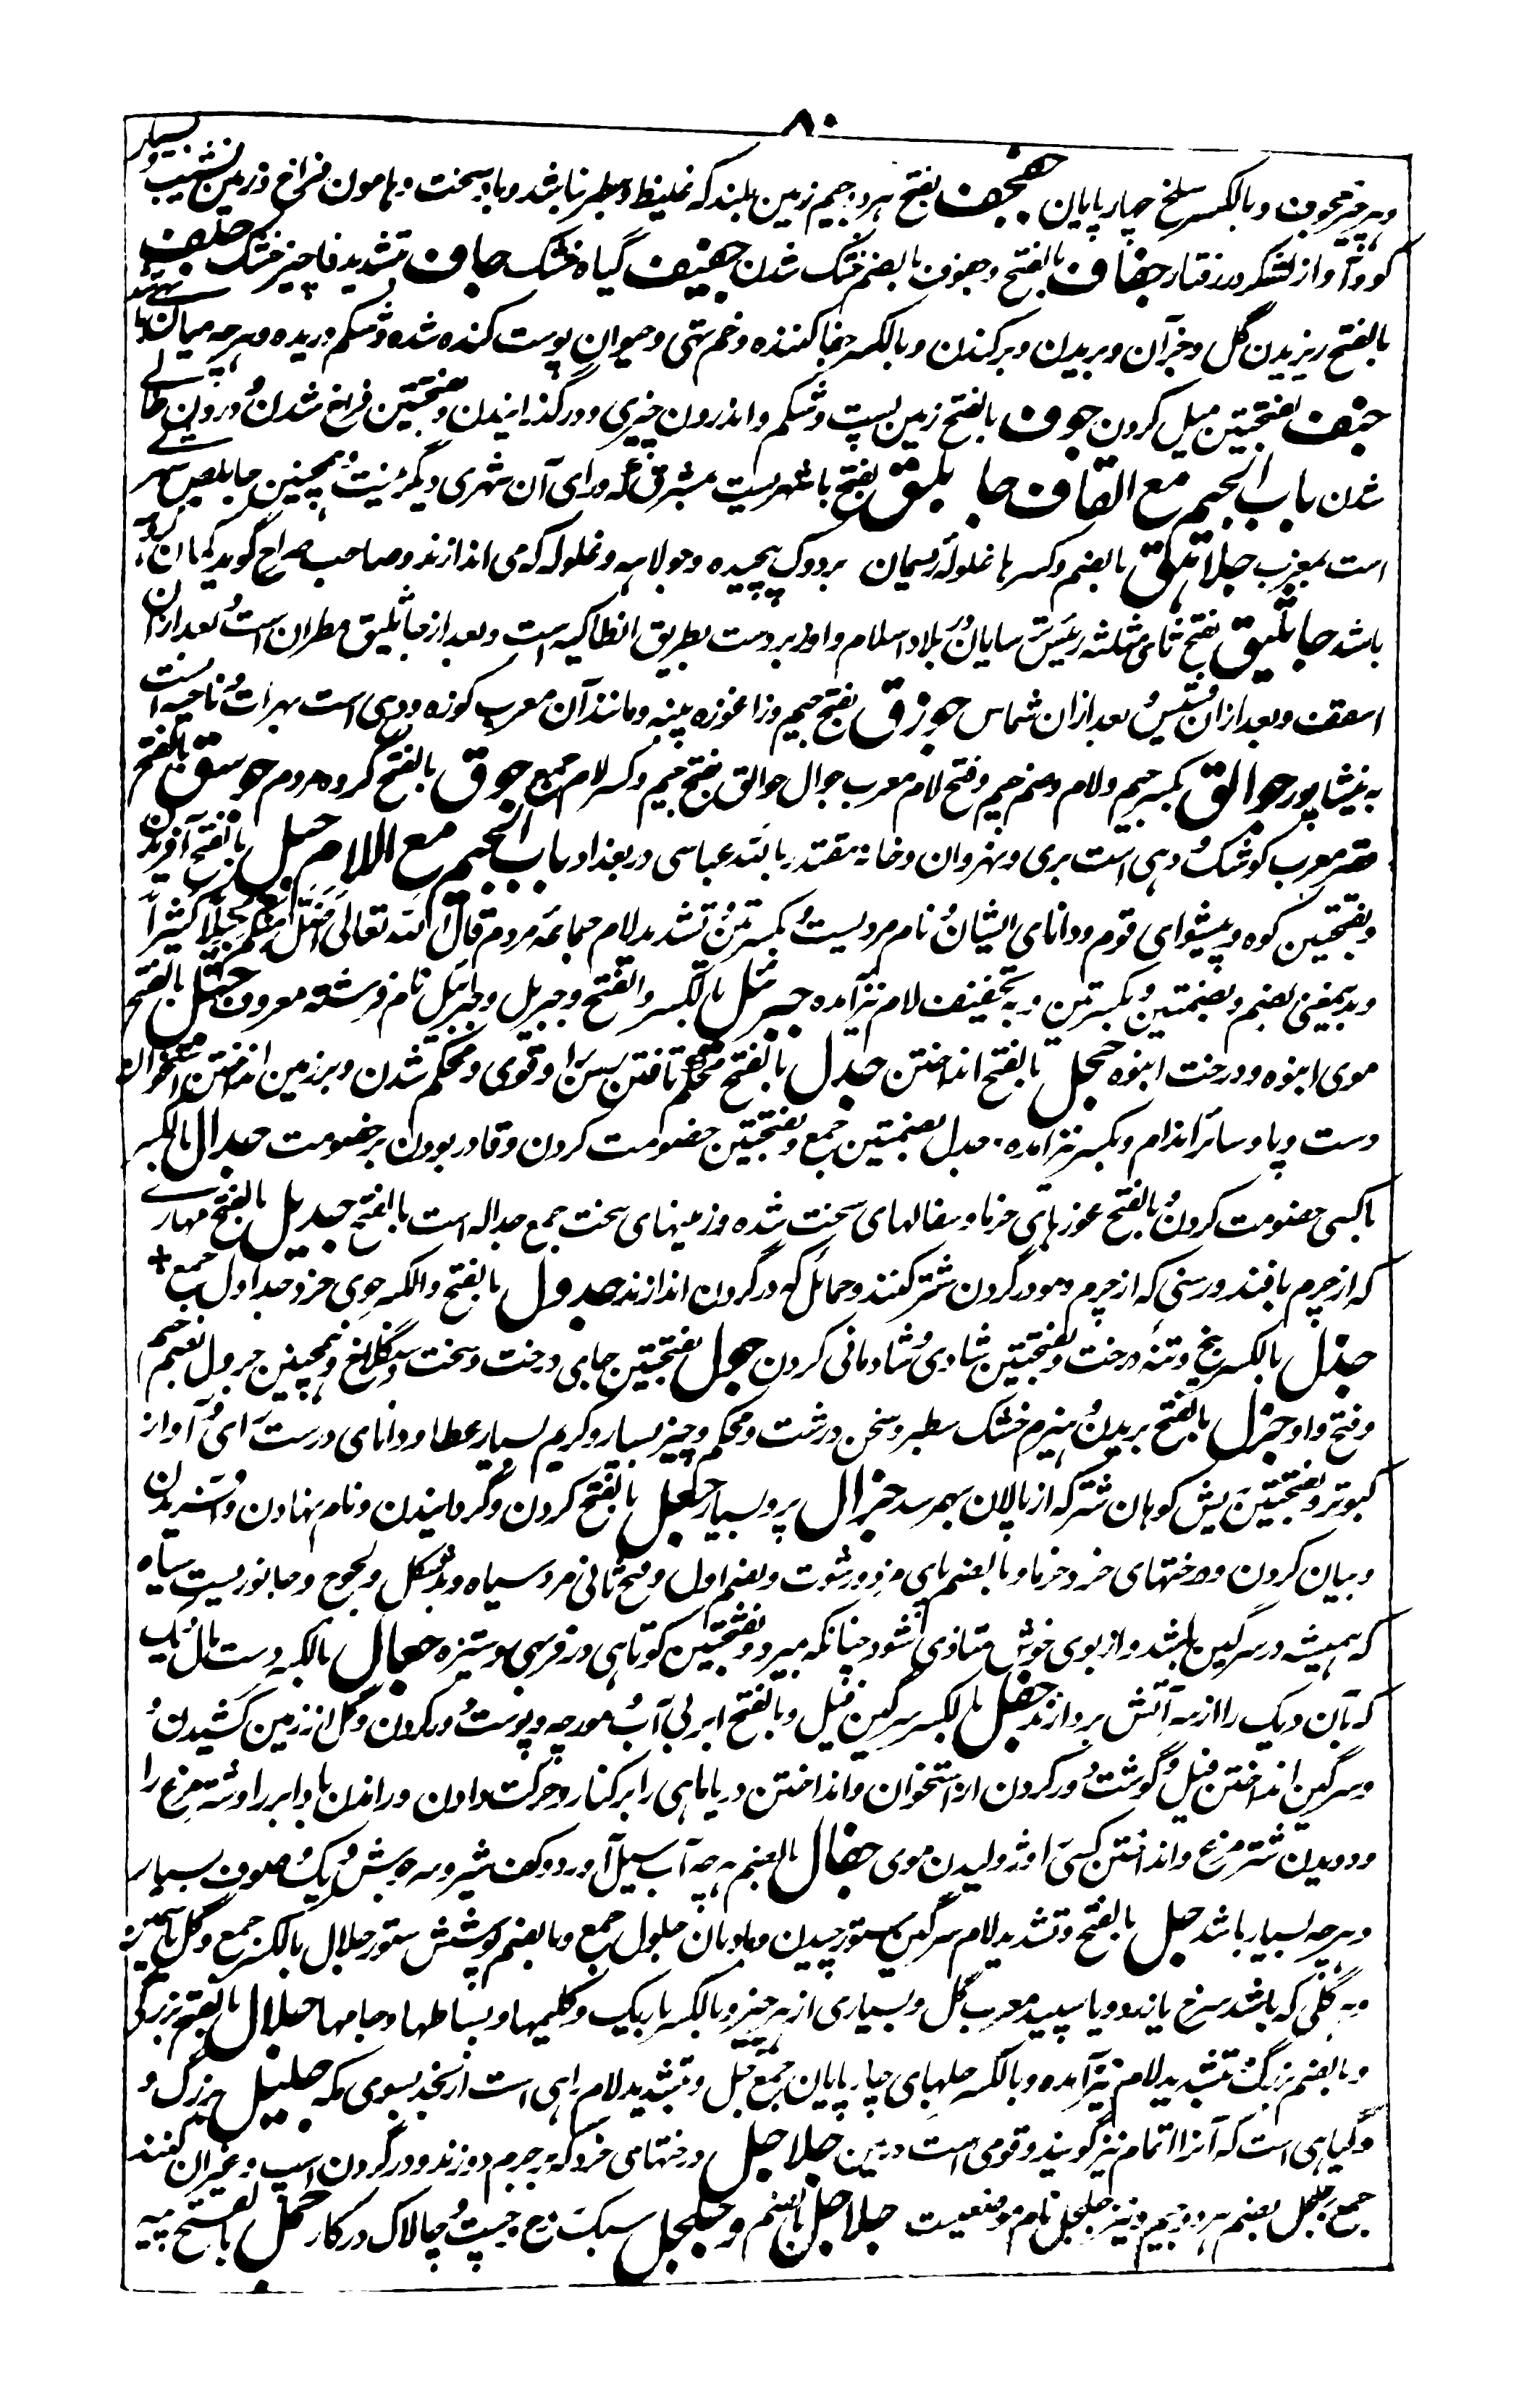 ۸۰
و هر چیز مجوف و بالکسر سلخ چهارپایان جفجف بفتح هر دو جیم زمین بلند که غلیظ و سطبر نباشد و باد سخت و هامون فراخ و زمین نشیب و بسیار
کو و آواز لشکر در رفتار جفاف بالفتح و جفوف بالضم خشک شدن جفیف گیاه خشک جاف بتشدید فا چیز خشک جلف
بالفتح رندیدن گل و جز آن و بریدن و برکندن و بالکسر جفا کننده و خم تهی و حیوان پوست کنده شده و شکم دریده و هر چه میان تهی باشد
جنف بفتحتین میل کردن جوف بالفتح زمین پست و شکم و اندرون چیزی و درگذرانیدن و بفتحتین فراخ شدن و درون خالی
شدن باب الجیم مع القاف جابلق بفتح با شهریست بمشرق که ورای آن شهری دیگر نیست و همچنین جابلص شهری
است بمغرب جلاهق بالضم و کسر ها غلولهٔ ریسمان بر دوک پیچیده و جولاهه و غلوله که می اندازند و صاحب صراح گوید که کمان گروهه
باشد جاثلیق بفتح ثای مثلثه رئیس ترسایان در بلاد اسلام و او زیر دست بطریق انطاکیه است و بعد از جاثلیق مطران است و بعد از آن
اسقف و بعد ازان قسیس و بعد ازان شماس جوزق بفتح جیم و زا غوزه پنبه و مانند آن معرب کوزه و دهی است بهرات و ناحیه است
به نیشاپور جوالق بکسر جیم و لام و ضم جیم و فتح لام معرب جوال جوالق بفتح جیم و کسر لام جمع جوق بالفتح گروه مردم جوسق بالفتح
قصر معرب کوشک و دهی است بری و نهروان و خانه مقتدر بالله عباسی در بغداد باب الجیم مع اللام جبل بالفتح آفریدن
و بفتحتین کوه و پیشوای قوم و دانای ایشان و نام مردیست و بکسرتین و تشدید لام جماعه مردم قال الله تعالی اضل منکم جبلا کثیرا
و بدینمعنی بضم و بضمتین و بکسرتین و به تخفیف لام نیز آمده جبرئل بالکسر و الفتح و جبریل و جبرائیل نام فرشته معروف جثل بالفتح
موی انبوه و درخت انبوه جحل بالفتح انداختن جدل بالفتح محکم تافتن رسن را و قوی و محکم شدن و بر زمین انداختن و استخوان
دست و پا و سائر اندام و بکسر نیز آمده جدل بضمتین جمع و بفتحتین خصومت کردن و قادر بودن بر خصومت جدال بالکسر
با کسی خصومت کردن و بالفتح غوزهای خرما و سفالهای سخت شده و زمینهای سخت جمع جداله است بالفتح جدیل بالفتح مهاری
که از چرم بافند و رسنی که از چرم و مو در گردن شتر کنند و حمائل که در گردن اندازند جدول بالفتح و الکسر جوی خرد جداول جمع
جذل بالکسر بیخ و تنه درخت و بفتحتین شادی و شادمانی کردن جرل بفتحتین جای درخت و سخت و سنگلاخ و همچنین جرول بفتح جیم
و فتح واو جزل بالفتح بریدن و هیزم خشک سطبر و سخن درشت و محکم و چیز بسیار و کریم بسیار عطا و دانای درست رای و آواز
کبوتر و بفتحتین ریش کوهان شتر که از پالان بهم رسد جزال پر و بسیار جعل بالفتح کردن و گردانیدن و نام نهادن و آفریدن
و بیان کردن و درختهای خرد خرما و بالضم پای مزد و رشوت و بضم اول و فتح ثانی مرد سیاه و بدشکل و لجوج و جانوریست سیاه
که همیشه در سرگین باشد و از بوی خوش متاذی شود چنانکه بمیرد و بفتحتین کوتاهی در فربهی و ستیزه جعال بالکسر دست مال دیگ
که بآن دیگ را از سر آتش بردارند جفل بالکسر سرگین فیل و بالفتح ابر بی آب و مورچه و پوست دور کردن و گل از زمین کشیدن و
و سرگین انداختن فیل و گوشت دور کردن از استخوان و انداختن دریا ماهی را بر کنار و حرکت دادن و راندن باد ابر را و شترمرغ را
و دویدن شترمرغ و انداختن کسی را و ژولیدن موی جفال بالضم هر چه آب سیل آورد و کف شیر و سر جوش دیگ و صوف بسیار
و هر چه بسیار باشد جل بالفتح و تشدید لام سرگین ستور چیدن و بادبان جلول جمع و بالضم پوشش ستور جلال بالکسر جمع و گل یاسمین
و هر گلی که باشد سرخ یا زرد و یا سپید معرب گل و بسیاری از هر چیز و بالکسر باریک و گلیمها و بساطها و جامها جلال بالفتح بزرگی
و بالضم بزرگ و بتشدید لام نیز آمده و بالکسر جلهای چارپایان جمع جل و بتشدید لام راهی است از نجد بسوی مکه جلیل بزرگ و
و گیاهی است که آنرا ثمام نیز گویند و قومی است در یمن جلاجل درختهای خرد که بر چرم دوزند و در گردن اسپ و غیر آن کنند
جمع جلجل بضم هر دو جیم و نیز جلجل نام موضعیست جلاجل بالضم و جلجل سبک روح و چست و چالاک در کار جمل بالفتح پیه